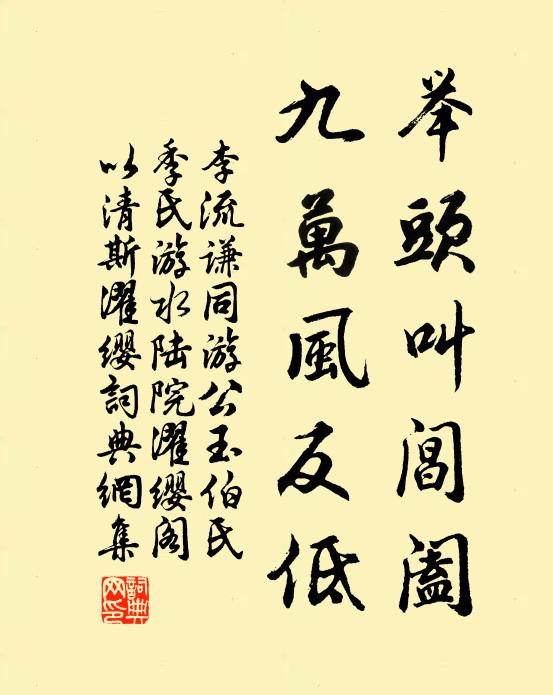 举頭叫閶阖
九萬風反低
李流谦同游公玉伯氏
季氏游水陆院濯缨阁
以清斯濯纓詞典網集
詞典網印